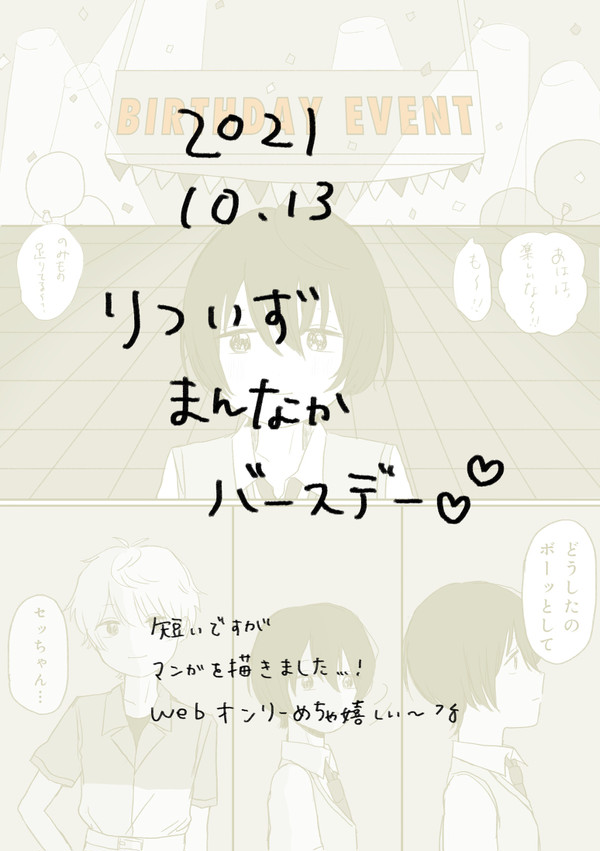 BIRTHDAY EVENT
2021
10.13
りついず
まんなか
バースデー♡♡
あはは、
楽しいな〜!!
も〜!!
のみもの
足りてる〜?
どうしたの
ボーッとして
セッちゃん…
短いですが
マンガを描きました…!
webオンリーめちゃ嬉しい〜